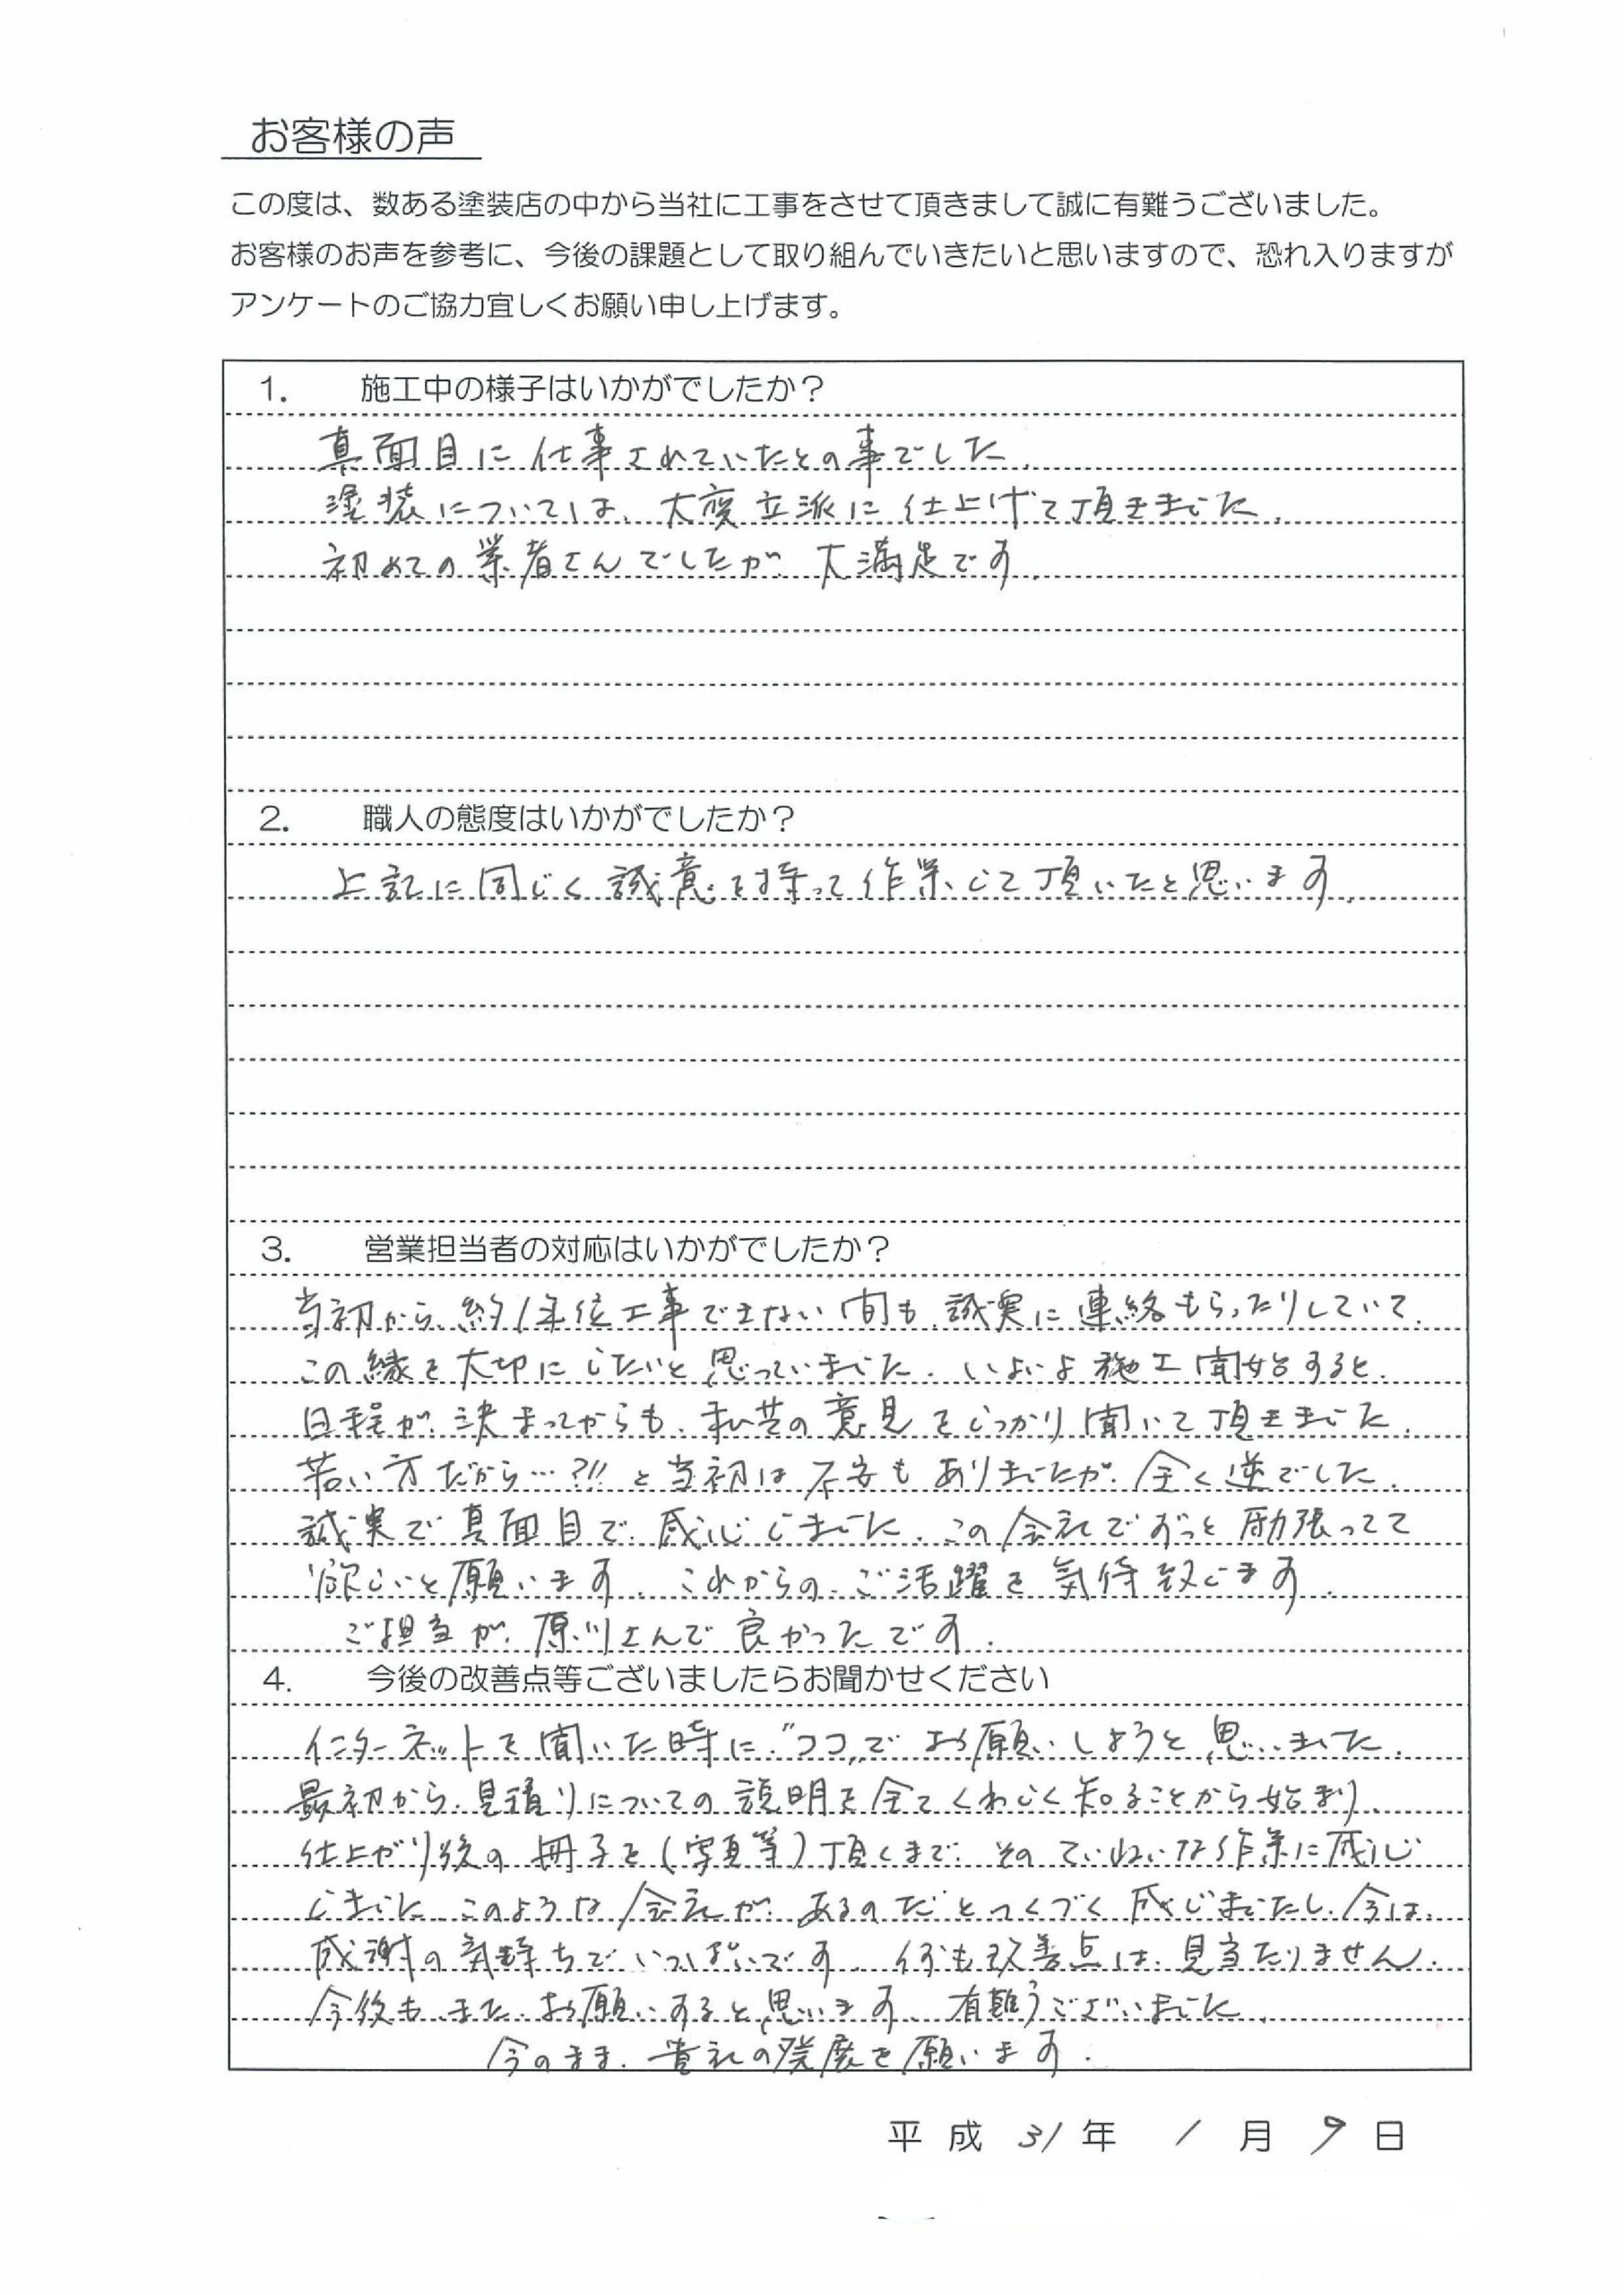 お客様の声
この度は、数ある塗装店の中から当社に工事をさせて頂きまして誠に有難うございました。
お客様のお声を参考に、今後の課題として取り組んでいきたいと思いますので、恐れ入りますが
アンケートのご協力宜しくお願い申し上げます。
1. 施工中の様子はいかがでしたか？
真面目に仕事されていたとの事でした.
塗装については、大変立派に仕上げて頂きました.
初めての業者さんでしたが大満足です.
2. 職人の態度はいかがでしたか？
上記に同じく誠意を持って作業して頂いたと思います.
3. 営業担当者の対応はいかがでしたか？
当初から、約1年位工事できない間も、誠実に連絡もらったりしていて.
この縁を大切にしたいと思っていました. いよいよ施工開始すると.
日程が決まってからも、私共の意見をしっかり聞いて頂きました.
若い方だから…?!!と当初は不安もありましたが、全く逆でした.
誠実で真面目で、感心しました. この会社でずっと励張ってて
欲しいと願います. これからの、ご活躍を気待致します.
ご担当が、原川さんで良かったです.
4. 今後の改善点等ございましたらお聞かせください
インターネットを開いた時に"ココ"でお願いしようと思いました.
最初から、見積りについての説明を全てくわしく知ることから始まり、
仕上がり後の冊子を(写真等)頂くまで、そのていねいな作業に感心
しました. このような会社が、あるのだとつくづく感じましたし、今は、
感謝の気持ちでいっぱいです. 何も改善点は、見当たりません.
今後も、また、お願いすると思います、有難うございました.
今のまま、貴社の発展を願います.
平成 31年 1月 9日